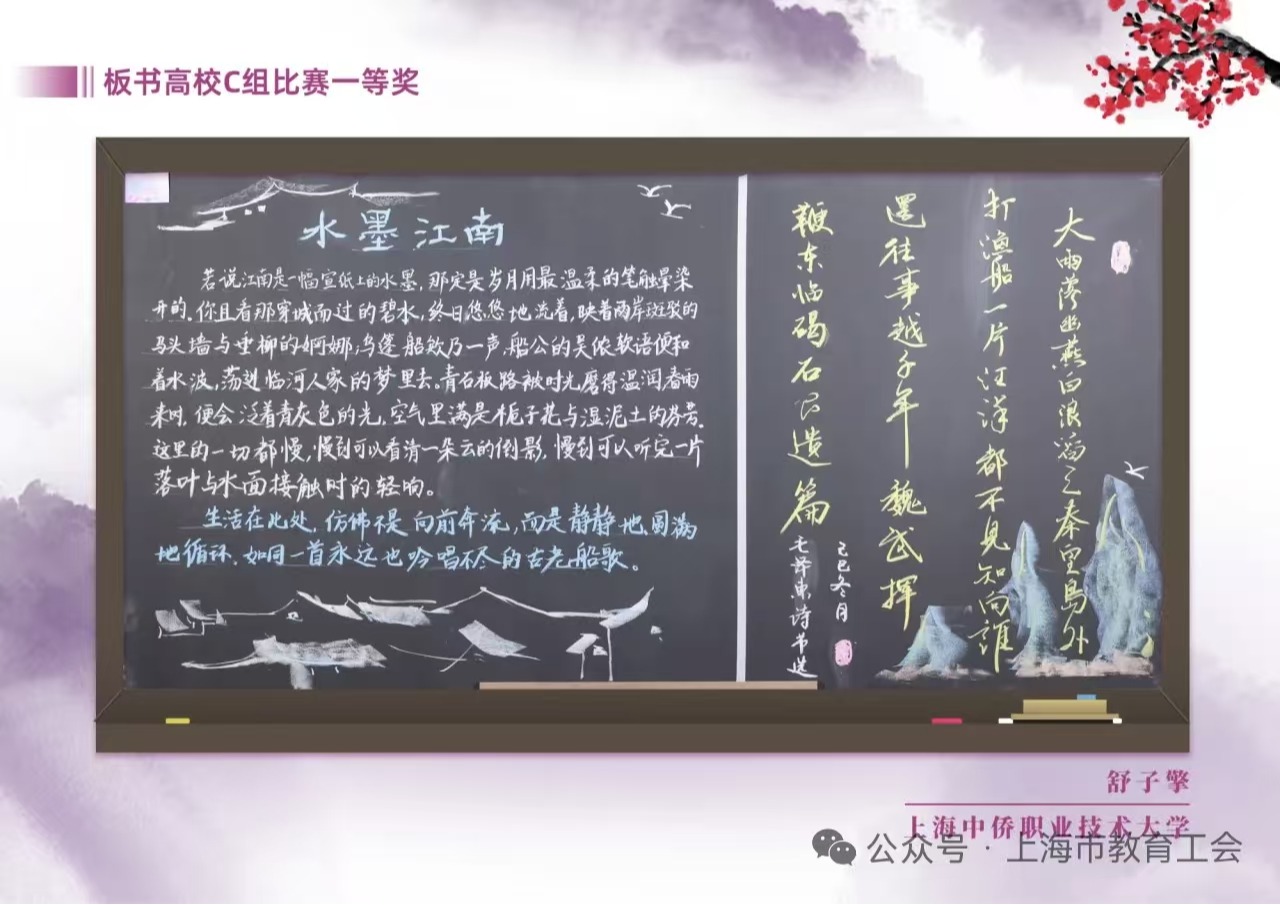 板书高校C组比赛一等奖
水墨江南
若说江南是一幅宣纸上的水墨,那定是岁月用最温柔的笔触晕染
开的。你且看那穿城而过的碧水,终日悠悠地流着,映着两岸斑驳的
马头墙与垂柳的婀娜,乌篷船欸乃一声,船公的吴侬软语便和
着水波,荡进临河人家的梦里去。青石板路被时光磨得温润春雨
来时,便会泛着青灰色的光,空气里满是栀子花与湿泥土的芬芳。
这里的一切都慢,慢到可以看清一朵云的倒影,慢到可以听完一片
落叶与水面接触时的轻响。
生活在此处,仿佛不是向前奔流,而是静静地,圆满
地循环,如同一首永远也吟唱不尽的古老船歌。
大雨落幽燕白浪滔天秦皇島外
打漁船一片汪洋都不見知向誰
邊往事越千年魏武揮
鞭东临碣石有遺篇
乙巳冬月
毛泽東诗节选
舒子擎
上海中侨职业技术大学
公众号·上海市教育工会